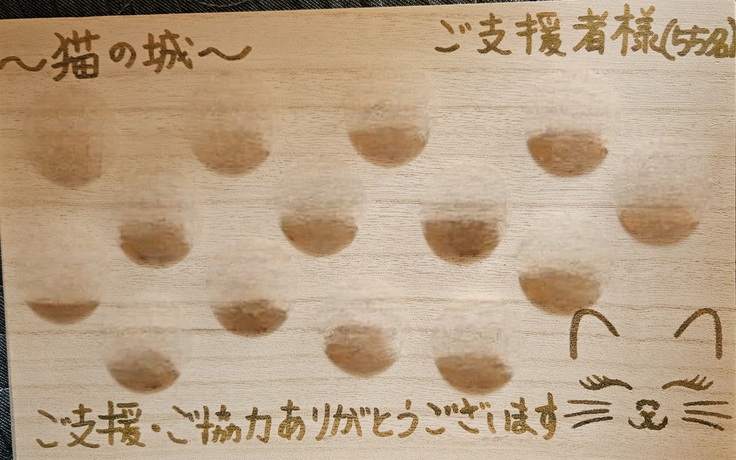 ～猫の城～
ご支援者様
ご支援・ご協力ありがとうございます